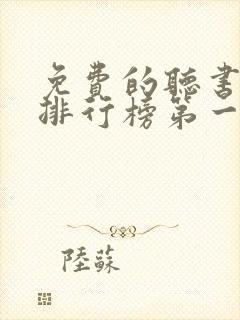 免費的聽書
排行榜第一
陸蘇